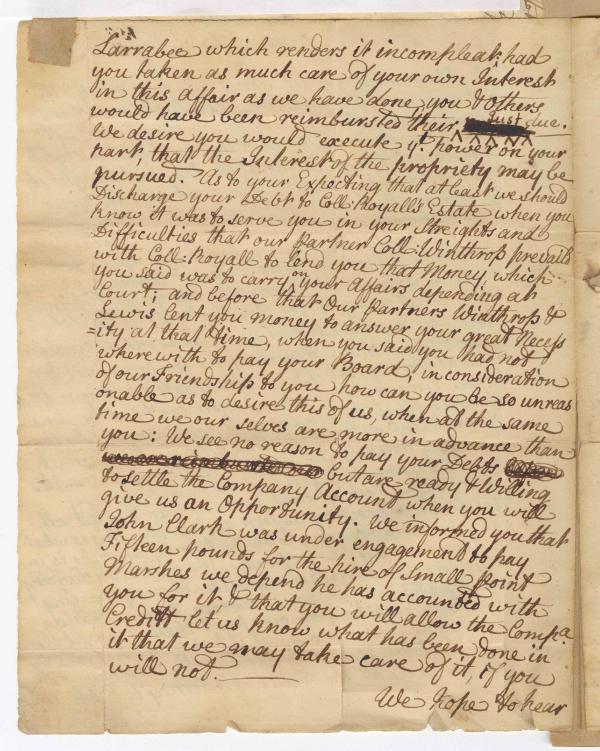 Larrabee which renders it incompleat: had
you taken as much care of your own Interest
in this affair as we have done, you & Others
would have been reimbursted their Just due.
We desire you would execute yr. power on your
part, that the Interest of the propriety may be
pursued. As to your Expecting that at least we should
Discharge your Debt to Coll: Royall's Estate when you
know it was to serve you in your Streights and
Difficulties that our Partner Coll: Winthrop prevails
with Coll: Royall to lend you that Money which
you said was to carry on your affairs depending at
Court; and before that Our Partners Winthrop &
Lewis lent you money to answer your great Necess
=ity at that time, when you said you had not
wherewith to pay your Board, in consideration
of our Friendship to you how can you be so unreas
onable as to desire this of us, when at the same
time we our selves are more in advance than
you: We see no reason to pay your Debts
but are ready & Willing
to settle the Company Account when you will
give us an Opportunity. We informed you that
John Clark was under engagement to pay
Fifteen pounds for the hire of Small Point
Marshes we depend he has accounted with
you for it, & that you will allow the Compa.
Creditt let us know what has been done in
it that we may take care of it, if you
will not.
We hope to hear